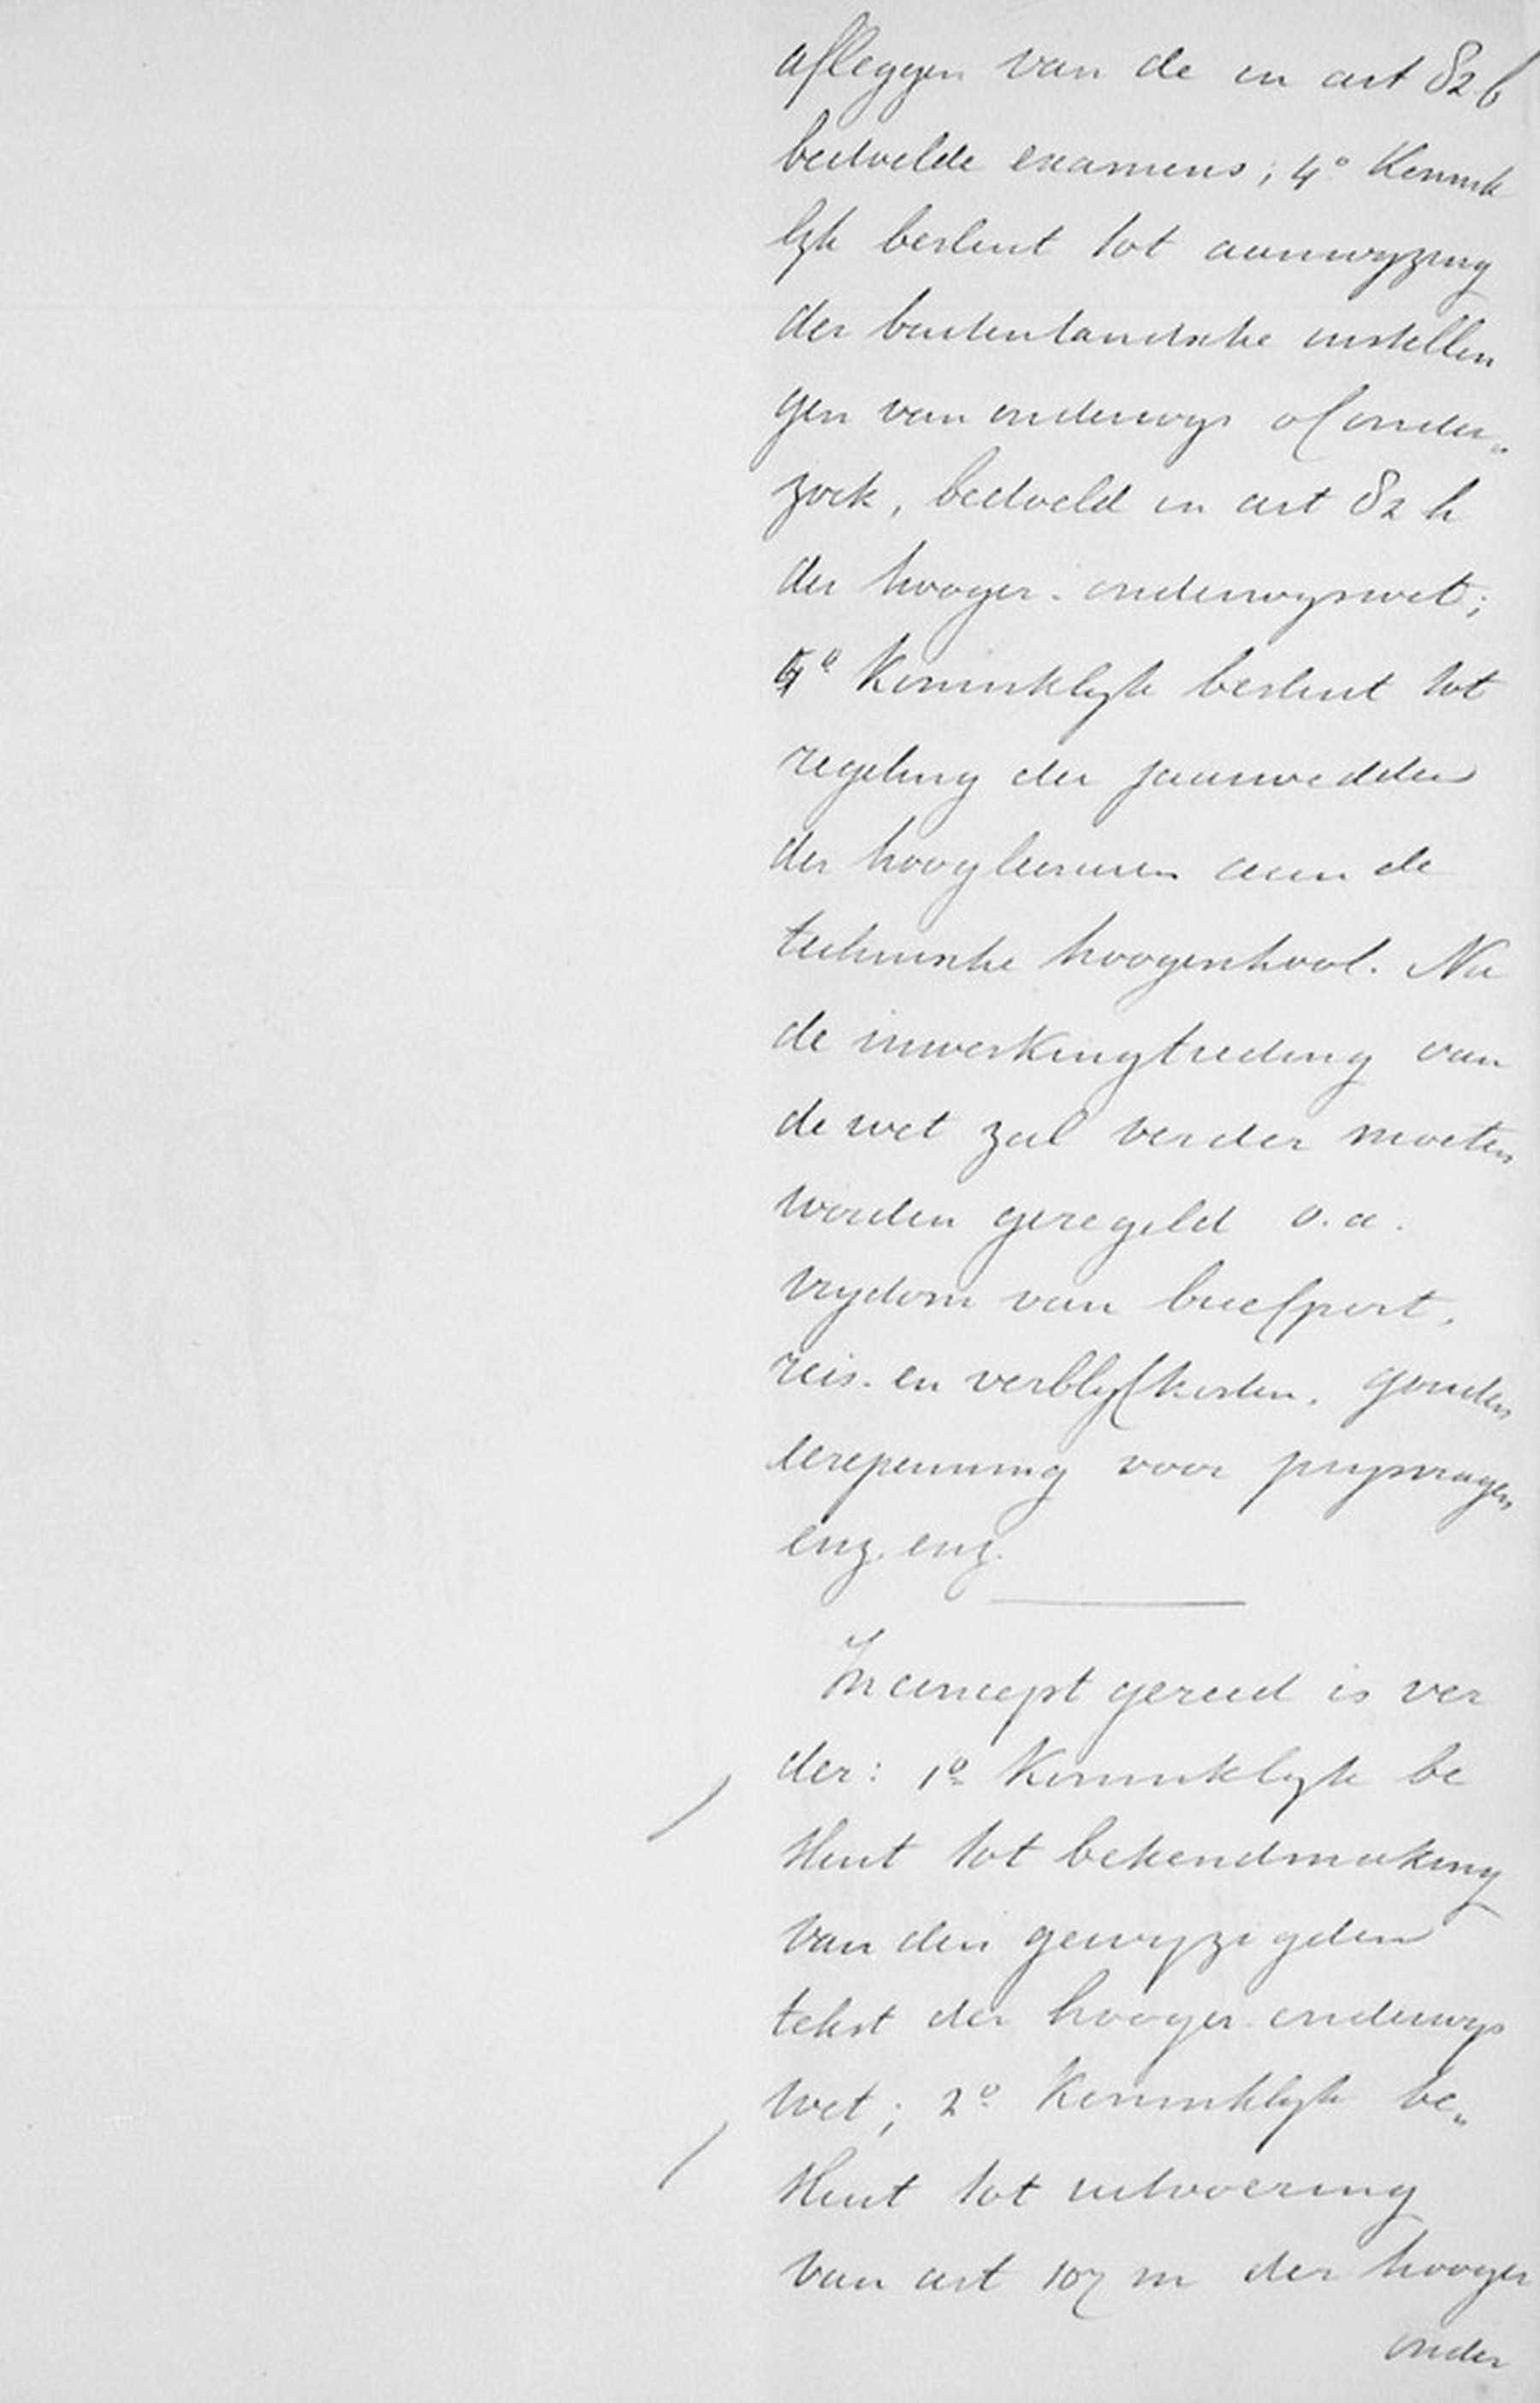 afleggen van de in art 82 f
bedoelde examens; 4° Konink
lijk besluit tot aanwyzing
der buitenlandsche instellin
gen van onderwys of onder„
zoek, bedoeld in art 82 h
der hooger-onderwyswet;
5° Koninklyk besluit tot
regeling der jaarwedden
der hoogleeraren aan de
technische hoogeschool. Na
de inwerkingtreding van
de wet zal verder moeten
worden geregeld o.a.
vrydom van briefport,
reis- en verblyfkosten, gouden
eerepenning voor prysvragen
enz. enz.
In concept gereed is ver
der: 1° Koninklyk be
sluit tot bekendmaking
van den gewyzigden
tekst der hooger-onderwys
wet; 2° Koninklyk be„
sluit tot uitvoering
van art 107 m der hooger
onder